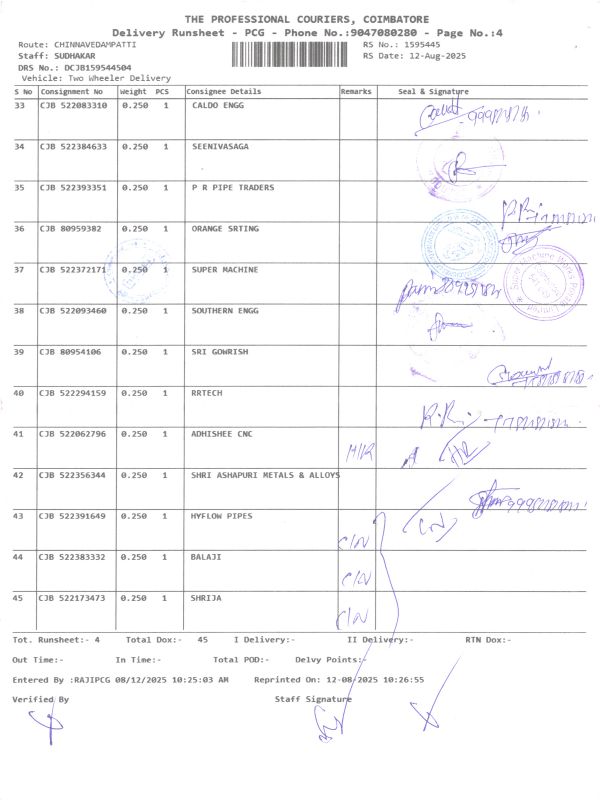 THE PROFESSIONAL COURIERS, COIMBATORE
Delivery Runsheet - PCG - Phone No.:9047080280 - Page No.:4
Route: CHINNAVEDAMPATTI RS No.: 1595445
Staff: SUDHAKAR RS Date: 12-Aug-2025
DRS No.: DCJB159544504
Vehicle: Two Wheeler Delivery
S No Consignment No Weight PCS Consignee Details Remarks Seal & Signature
33 CJB 522083310 0.250 1 CALDO ENGG
34 CJB 522384633 0.250 1 SEENIVASAGA
35 CJB 522393351 0.250 1 P R PIPE TRADERS
36 CJB 80959382 0.250 1 ORANGE SRTING
37 CJB 522372171 0.250 1 SUPER MACHINE
38 CJB 522093460 0.250 1 SOUTHERN ENGG
39 CJB 80954106 0.250 1 SRI GOWRISH
40 CJB 522294159 0.250 1 RRTECH
41 CJB 522062796 0.250 1 ADHISHEE CNC
42 CJB 522356344 0.250 1 SHRI ASHAPURI METALS & ALLOYS
43 CJB 522391649 0.250 1 HYFLOW PIPES C/N
44 CJB 522383332 0.250 1 BALAJI C/N
45 CJB 522173473 0.250 1 SHRIJA C/N
Tot. Runsheet:- 4 Total Dox:- 45 I Delivery:- II Delivery:- RTN Dox:-
Out Time:- In Time:- Total POD:- Delvy Points:-
Entered By :RAJIPCG 08/12/2025 10:25:03 AM Reprinted On: 12-08-2025 10:26:55
Verified By Staff Signature